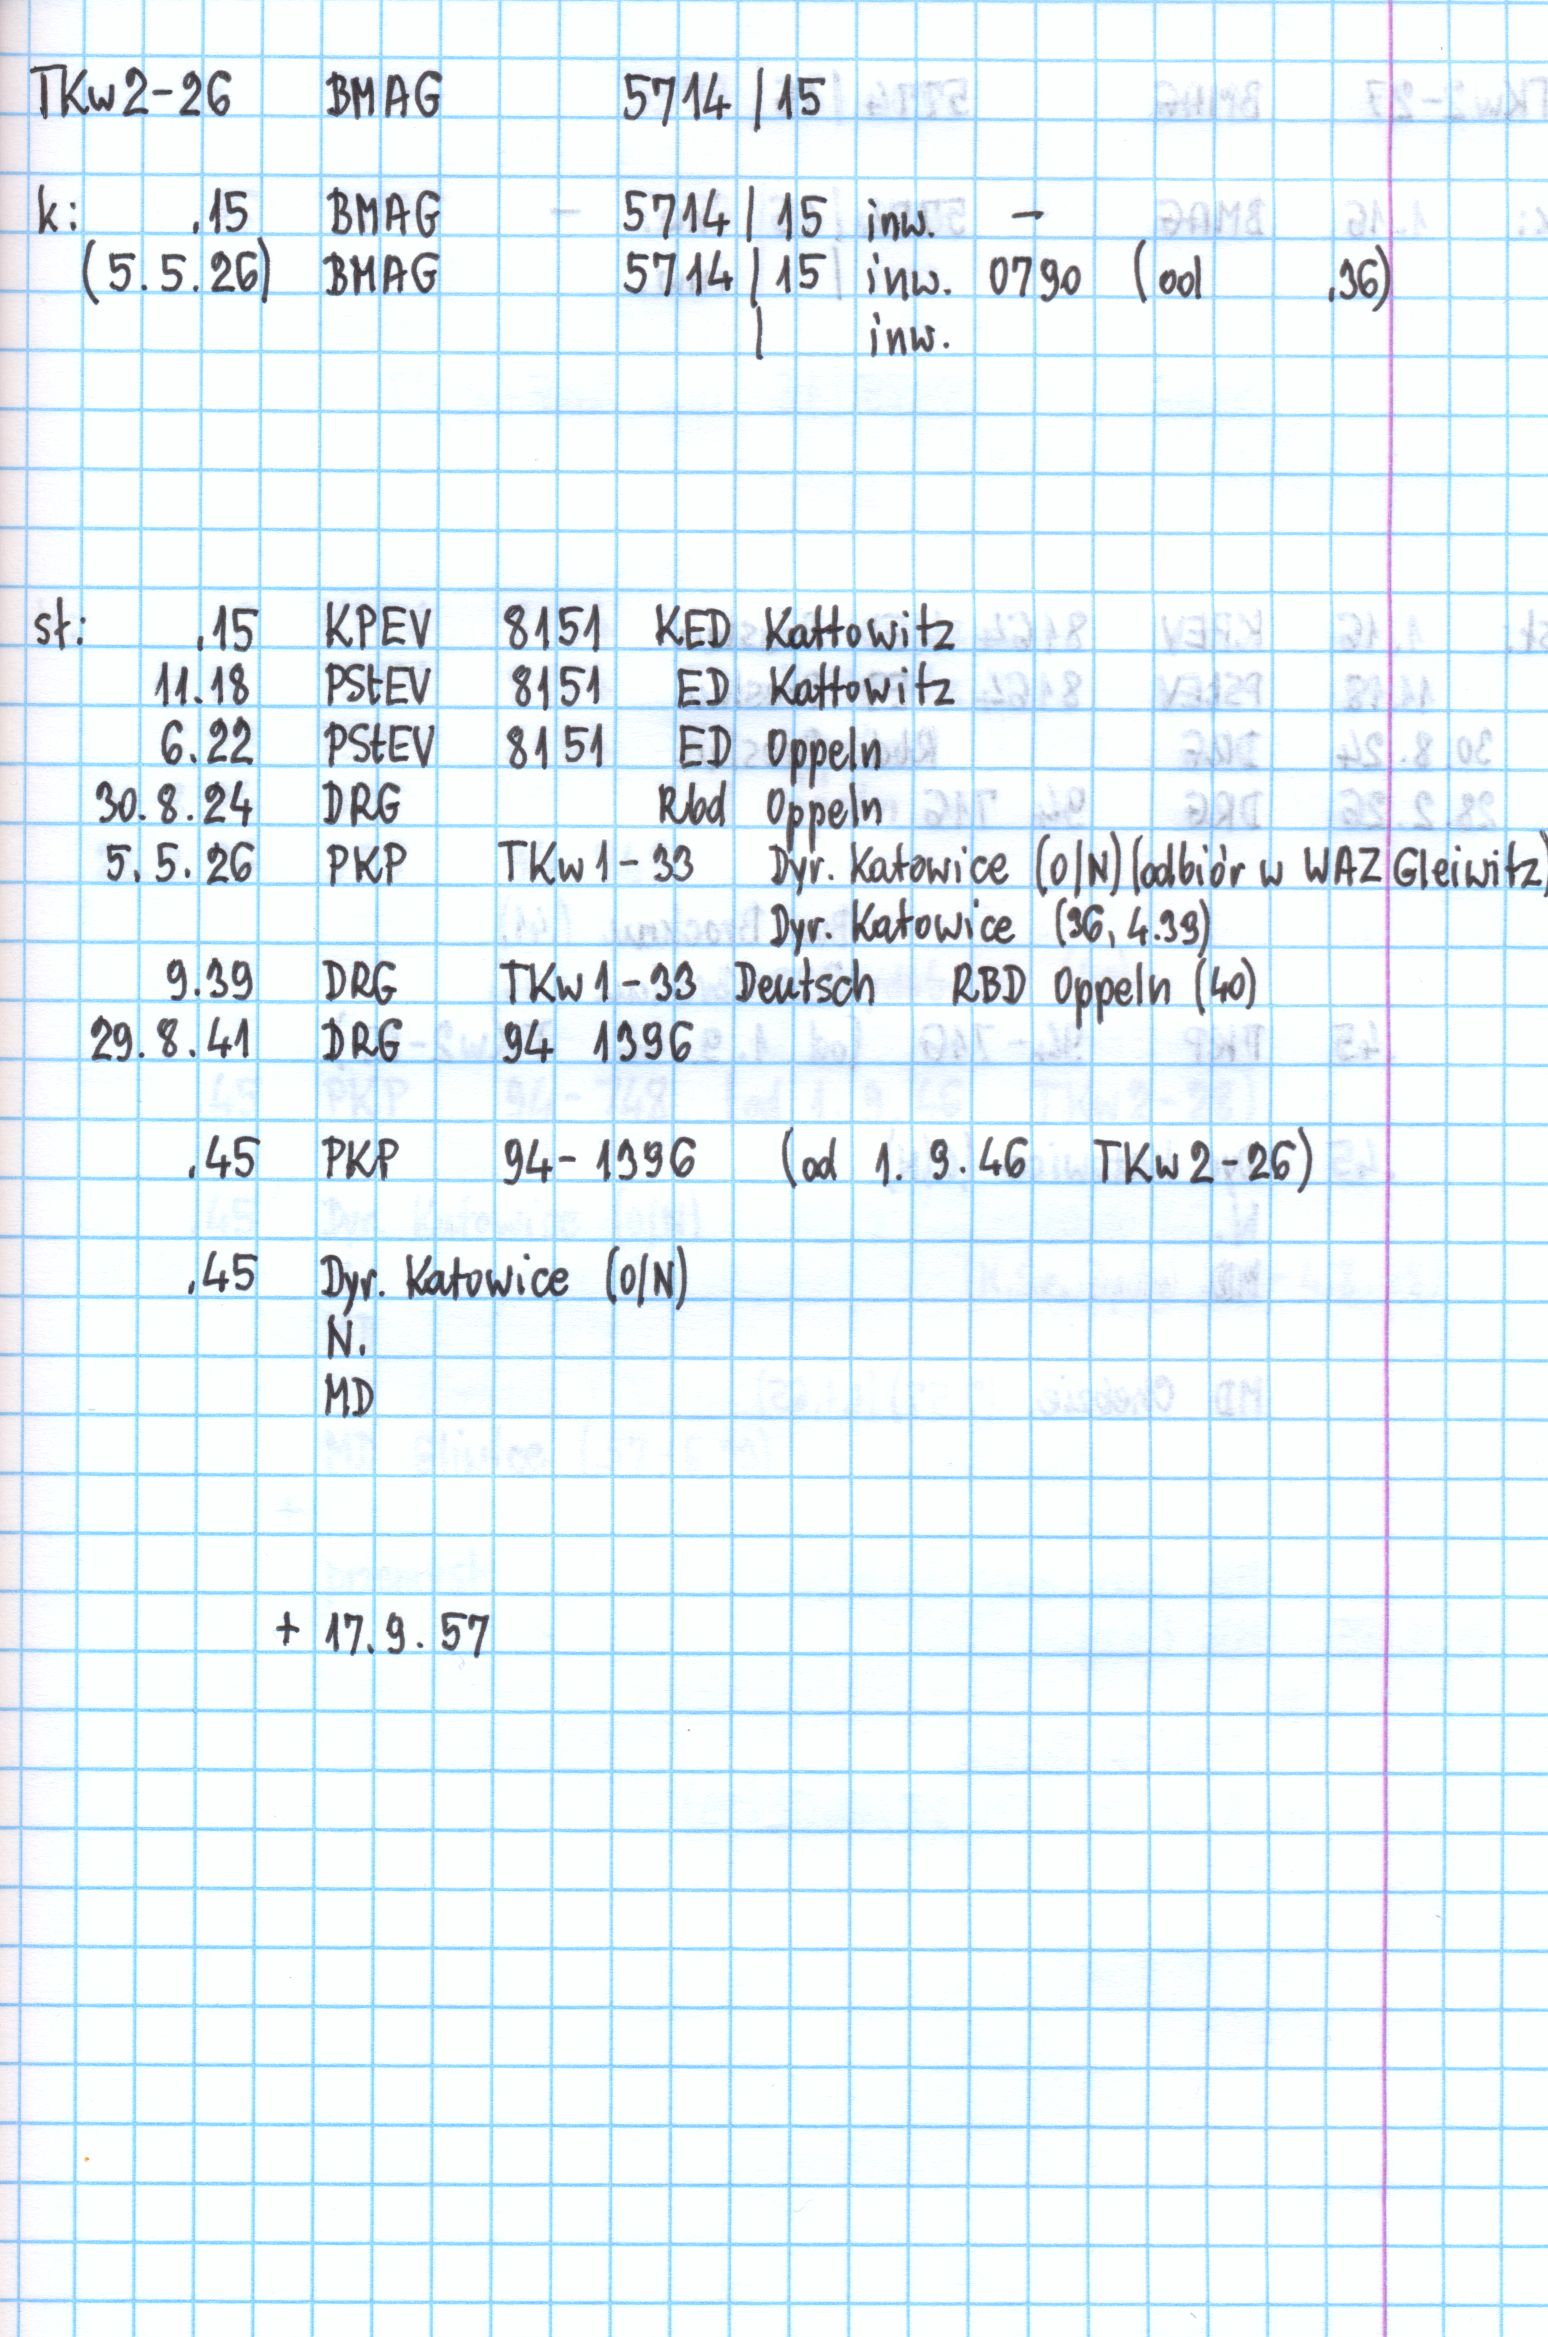 TKw2-26 BMAG 5714/15
k: .15 BMAG - 5714/15 inw. -
(5.5.26) BMAG 5714/15 inw. 0790 (od .36)
/ inw.
st: .15 KPEV 8151 KED Kattowitz
11.18 PStEV 8151 ED Kattowitz
6.22 PStEV 8151 ED Oppeln
30.8.24 DRG Rbd Oppeln
5.5.26 PKP TKw1-33 Dyr. Katowice (O/N) (odbiór w WAZ Gleiwitz)
Dyr. Katowice (36, 4.39)
9.39 DRG TKw1-33 Deutsch RBD Oppeln (40)
29.8.41 DRG 94 1396
.45 PKP 94-1396 (od 1.9.46 TKw2-26)
.45 Dyr. Katowice (O/N)
N.
MD
+ 17.9.57